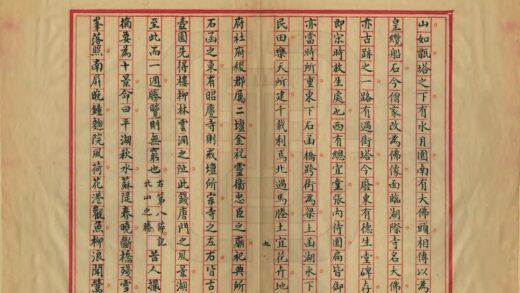 山如甑塔之下有水月園南有大佛頭相傳以為
皇纜船石今僧家改為佛像面臨湖際寺名大佛
亦古跡之一路有過街塔今廢東有德生堂碑存
即宋時放生處也西有總宜張內侍園皆御
亦當時所重東下石函橋跨街為梁上函湖水下
民田樂天所建千載利焉北過馬塍土宜花卉地
九
府社府稷郡厲二壇金祝靈衛忠臣之廟祀典所
石函之東有昭慶寺則戒壇所寺之左右皆古
園先得樓柳林雲洞之阯此錢唐門之風景湖
至此而一週勝覽則無窮也右第八節記北山之勝昔人撮
摘要為十景命曰平湖秋水蘇隄春曉斷橋殘雪
峯落照南屏晚鐘麯院風荷花港觀魚柳浪聞鶯